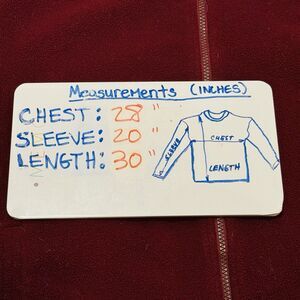 Measurements (INCHES)
CHEST: 28"
SLEEVE: 20"
LENGTH: 30"
SLEEVE
CHEST
LENGTH